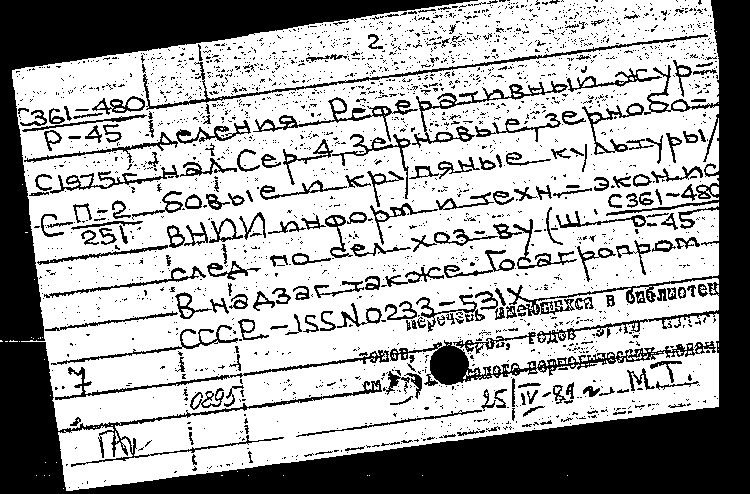 2
С361-480
Р-45
деления. Реферативный жур-
С1975г. нал. Сер. 4, Зерновые, зернобо-
С П-2
251
бовые и крупяные культуры/
ВНИИ информ и техн.-экон ис
след по сел. хоз-ву (Ш. С361-480
Р-45
В надзаг. также: Госагропром
СССР.-ISSN 0233-531X
Перечень имеющихся в библиотек
томов, номеров, годов
см. каталоге периодических издан
7
0895
25 IV-89 г. М.Т.